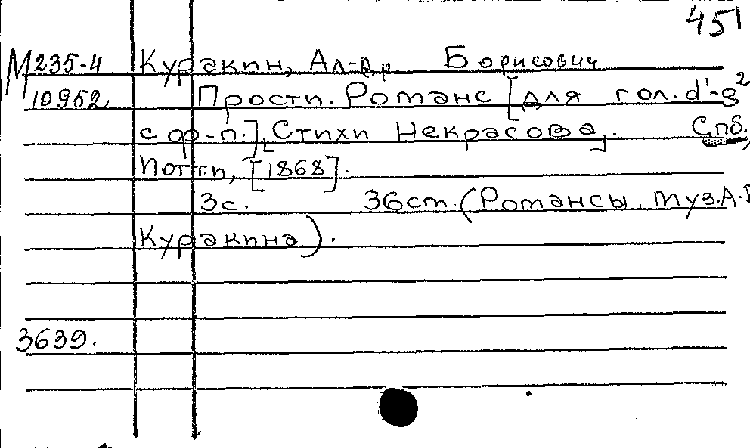 451
М 235-4 Куракин, Ал-др Борисович
10952 Прости. Романс [для гол. d¹-g²
с ф-п.], [Стихи Некрасова]. Спб.,
Поттн, [1868].
3с. 36ст. (Романсы муз. А.Б
Куракина).
3639.